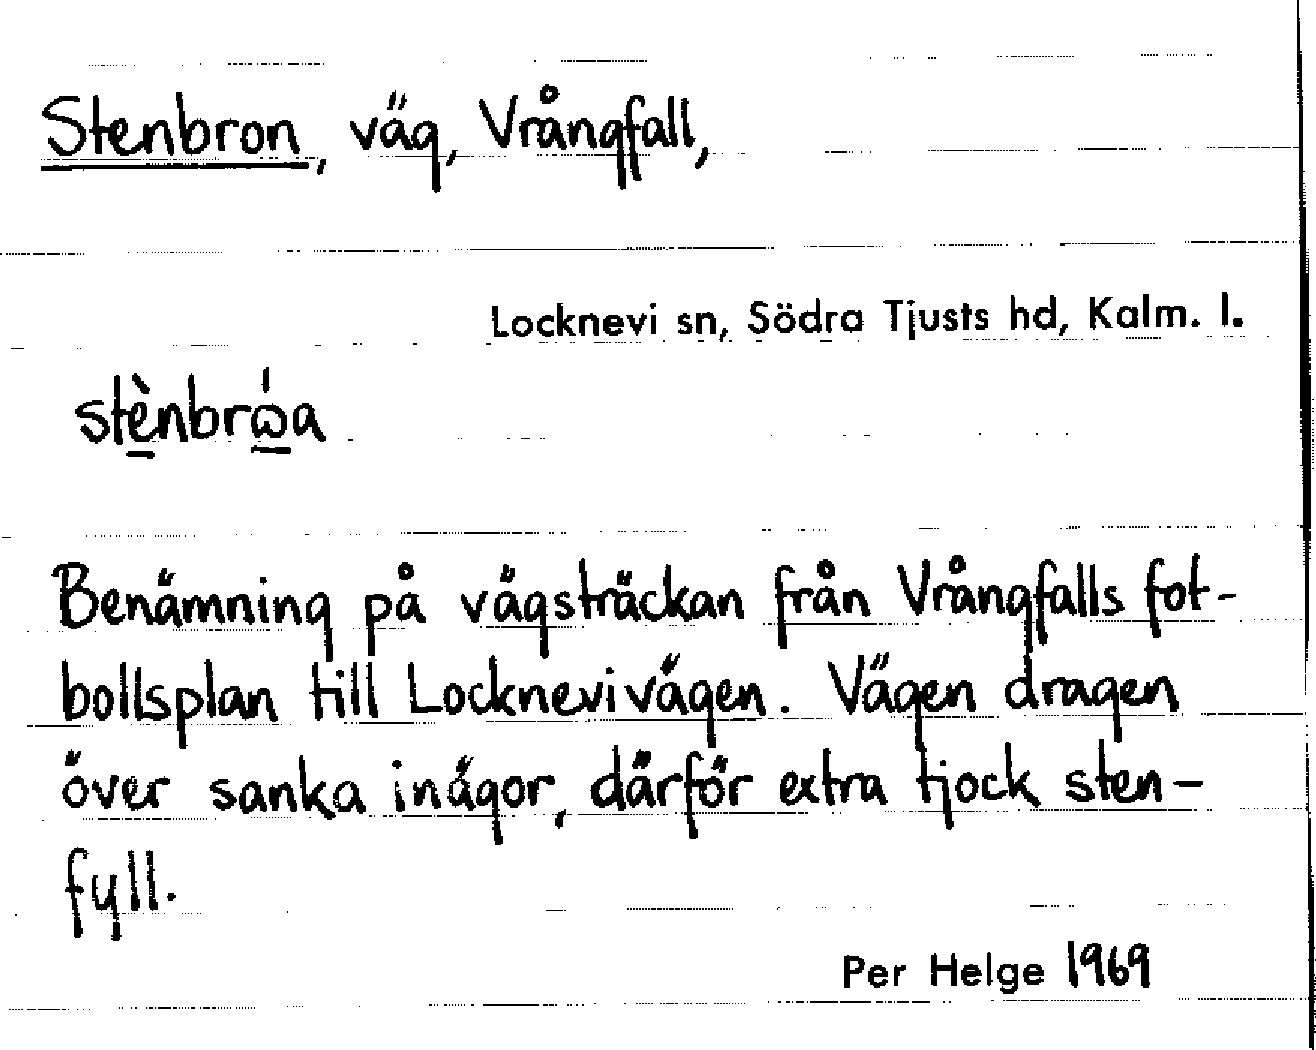 Stenbron, väg, Vrångfall,
Locknevi sn, Södra Tjusts hd, Kalm. l.
stè̲nbrώ̲a
Benämning på vägsträckan från Vrångfalls fot-
bollsplan till Locknevivägen. Vägen dragen
över sanka inägor, därför extra tjock sten-
fyll.
Per Helge 1969